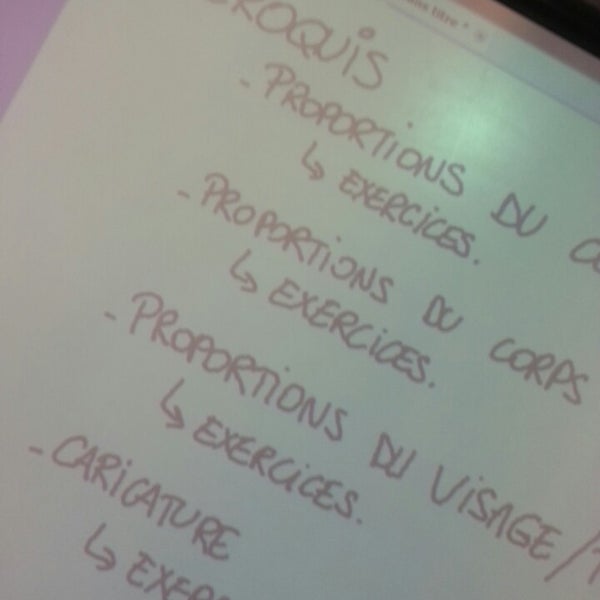 CROQUIS
- PROPORTIONS DU
↳ EXERCICES.
- PROPORTIONS DU CORPS
↳ EXERCICES.
- PROPORTIONS DU VISAGE /
↳ EXERCICES.
- CARICATURE
↳